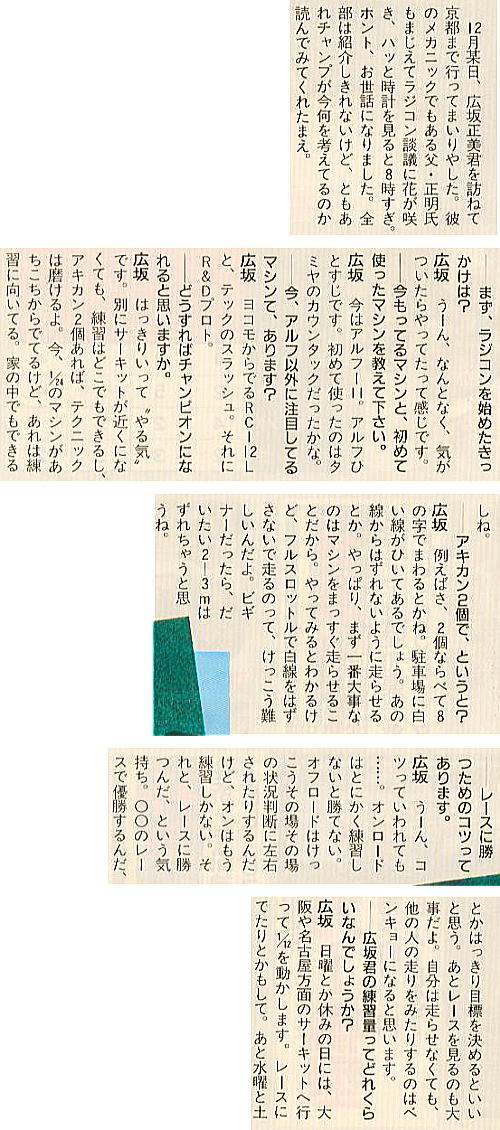 12月某日、広坂正美君を訪ねて
京都まで行ってまいりやした。彼
のメカニックでもある父・正明氏
もまじえてラジコン談議に花が咲
き、ハッと時計を見ると8時すぎ。
ホント、お世話になりました。全
部は紹介しきれないけど、ともあ
れチャンプが今何を考えてるのか
読んでみてくれたまえ。
――まず、ラジコンを始めたきっ
かけは？
広坂　うーん、なんとなく、気が
ついたらやってたって感じです。
――今もってるマシンと、初めて
使ったマシンを教えて下さい。
広坂　今はアルフーII。アルフひ
とすじです。初めて使ったのはタ
ミヤのカウンタックだったかな。
――今、アルフ以外に注目してる
マシンて、あります？
広坂　ヨコモからでるRC-12L
と、テックのスラッシュ。それに
R&Dプロト。
――どうすればチャンピオンにな
れると思いますか。
広坂　はっきりいって〝やる気〟
です。別にサーキットが近くにな
くても、練習はどこでもできるし、
アキカン2個あれば、テクニック
は磨けるよ。今、1/24のマシンがあ
ちこちからでてるけど、あれは練
習に向いてる。家の中でもできる
しね。
――アキカン2個で、というと？
広坂　例えばさ、2個ならべて8
の字でまわるとかね。駐車場に白
い線がひいてあるでしょう。あの
線からはずれないように走らせる
とか。やっぱり、まず一番大事な
のはマシンをまっすぐ走らせるこ
とだから。やってみるとわかるけ
ど、フルスロットルで白線をはず
さないで走るのって、けっこう難
しいんだよ。ビギ
ナーだったら、だ
いたい2―3mは
ずれちゃうと思
うね。
――レースに勝
つためのコツって
あります。
広坂　うーん、コ
ツっていわれても
……。オンロード
はとにかく練習し
ないと勝てない。
オフロードはけっ
こうその場その場
の状況判断に左右
されたりするんだ
けど、オンはもう
練習しかない。そ
れと、レースに勝
つんだ、という気
持ち。○○のレー
スで優勝するんだ、
とかはっきり目標を決めるといい
と思う。あとレースを見るのも大
事だよ。自分は走らせなくても、
他の人の走りをみたりするのはベ
ンキョーになると思います。
――広坂君の練習量ってどれくら
いなんでしょうか？
広坂　日曜とか休みの日には、大
阪や名古屋方面のサーキットへ行
って1/12を動かします。レースに
でたりとかもして。あと水曜と土